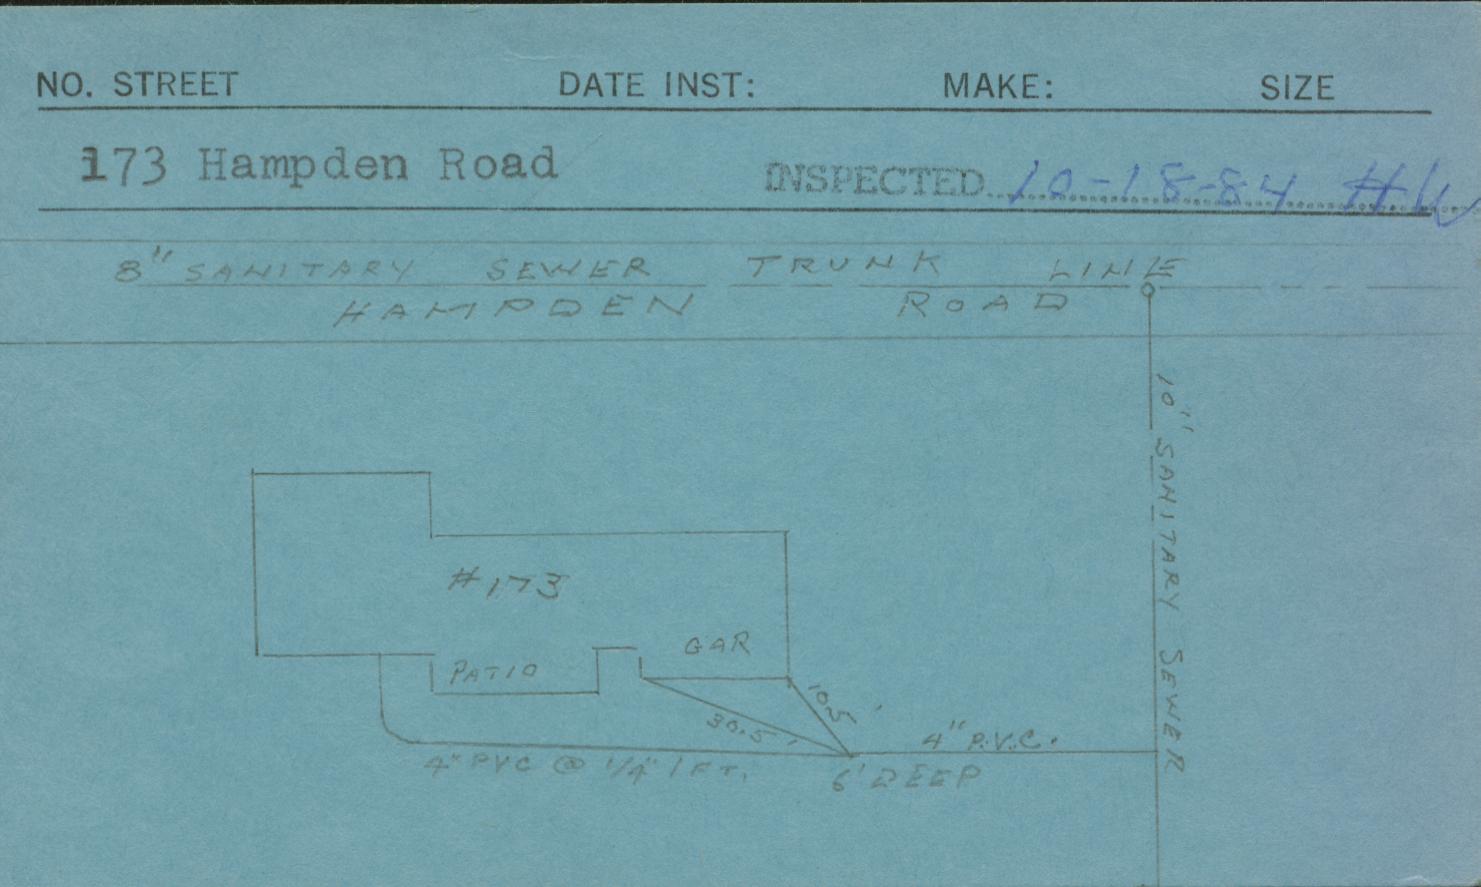 NO. STREET DATE INST: MAKE: SIZE
173 Hampden Road INSPECTED 10-18-84
8" SANITARY SEWER TRUNK LINE
HAMPDEN ROAD
10" SANITARY SEWER
#173
GAR
PATIO
10.5'
30.5'
4" P.V.C.
4" PVC @ 1/4" / FT.
6' DEEP